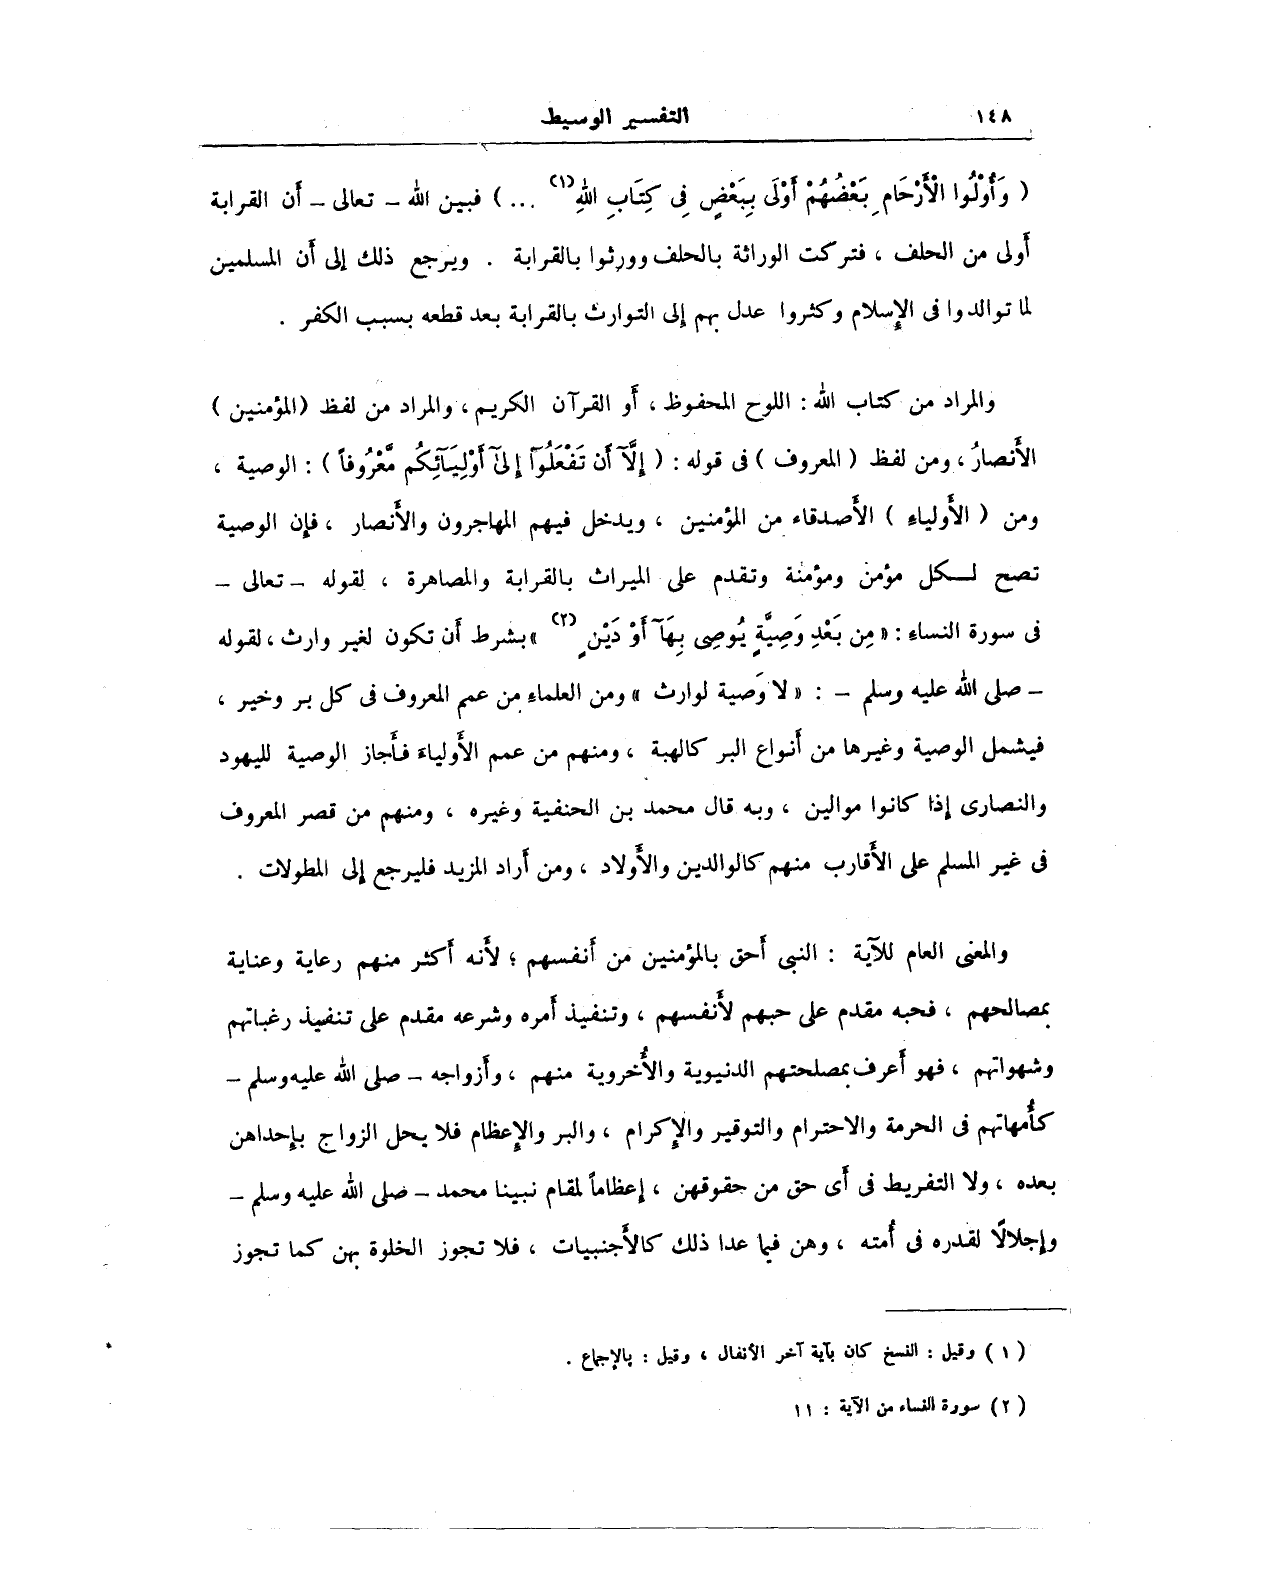 ١٤٨ التفسير الوسيط
( وَأُوْلُوا الْأَرْحَامِ بَعْضُهُمْ أَوْلَى بِبَعْضٍ فِى كِتَابِ اللهِ (١) ... ) فبين الله – تعالى – أن القرابة
أولى من الحلف ، فتركت الوراثة بالحلف وورثوا بالقرابة . ويرجع ذلك إلى أن المسلمين
لما توالدوا فى الإسلام وكثروا عدل بهم إلى التوارث بالقرابة بعد قطعه بسبب الكفر .
والمراد من كتاب الله : اللوح المحفوظ ، أو القرآن الكريم ، والمراد من لفظ (المؤمنين )
الأنصارُ ، ومن لفظ ( المعروف ) فى قوله : ( إِلَّآ أَن تَفْعَلُوٓا إِلَىٓ أَوْلِيَآئِكُم مَّعْرُوفاً ) : الوصية ،
ومن ( الأولياء ) الأصدقاء من المؤمنين ، ويدخل فيهم المهاجرون والأنصار ، فإن الوصية
تصح لكل مؤمن ومؤمنة وتقدم على الميراث بالقرابة والمصاهرة ، لقوله – تعالى –
فى سورة النساء : « مِن بَعْدِ وَصِيَّةٍ يُوصِى بِهَآ أَوْ دَيْنٍ (٢) » بشرط أن تكون لغير وارث ، لقوله
– صلى الله عليه وسلم – : « لا وَصية لوارث » ومن العلماء من عمم المعروف فى كل بر وخير ،
فيشمل الوصية وغيرها من أنواع البر كالهبة ، ومنهم من عمم الأولياء فأجاز الوصية لليهود
والنصارى إذا كانوا موالين ، وبه قال محمد بن الحنفية وغيره ، ومنهم من قصر المعروف
فى غير المسلم على الأقارب منهم كالوالدين والأولاد ، ومن أراد المزيد فليرجع إلى المطولات .
والمعنى العام للآية : النبى أحق بالمؤمنين من أنفسهم ؛ لأنه أكثر منهم رعاية وعناية
بمصالحهم ، فحبه مقدم على حبهم لأنفسهم ، وتنفيذ أمره وشرعه مقدم على تنفيذ رغباتهم
وشهواتهم ، فهو أعرف بمصلحتهم الدنيوية والأُخروية منهم ، وأزواجه – صلى الله عليه وسلم –
كأُمهاتهم فى الحرمة والاحترام والتوقير والإكرام ، والبر والإعظام فلا يحل الزواج بإحداهن
بعده ، ولا التفريط فى أى حق من حقوقهن ، إعظاماً لمقام نبينا محمد – صلى الله عليه وسلم –
وإجلالًا لقدره فى أُمته ، وهن فيما عدا ذلك كالأجنبيات ، فلا تجوز الخلوة بهن كما تجوز
( ١ ) وقيل : النسخ كان بآية آخر الأنفال ، وقيل : بالإجماع .
( ٢ ) سورة النساء من الآية : ١١